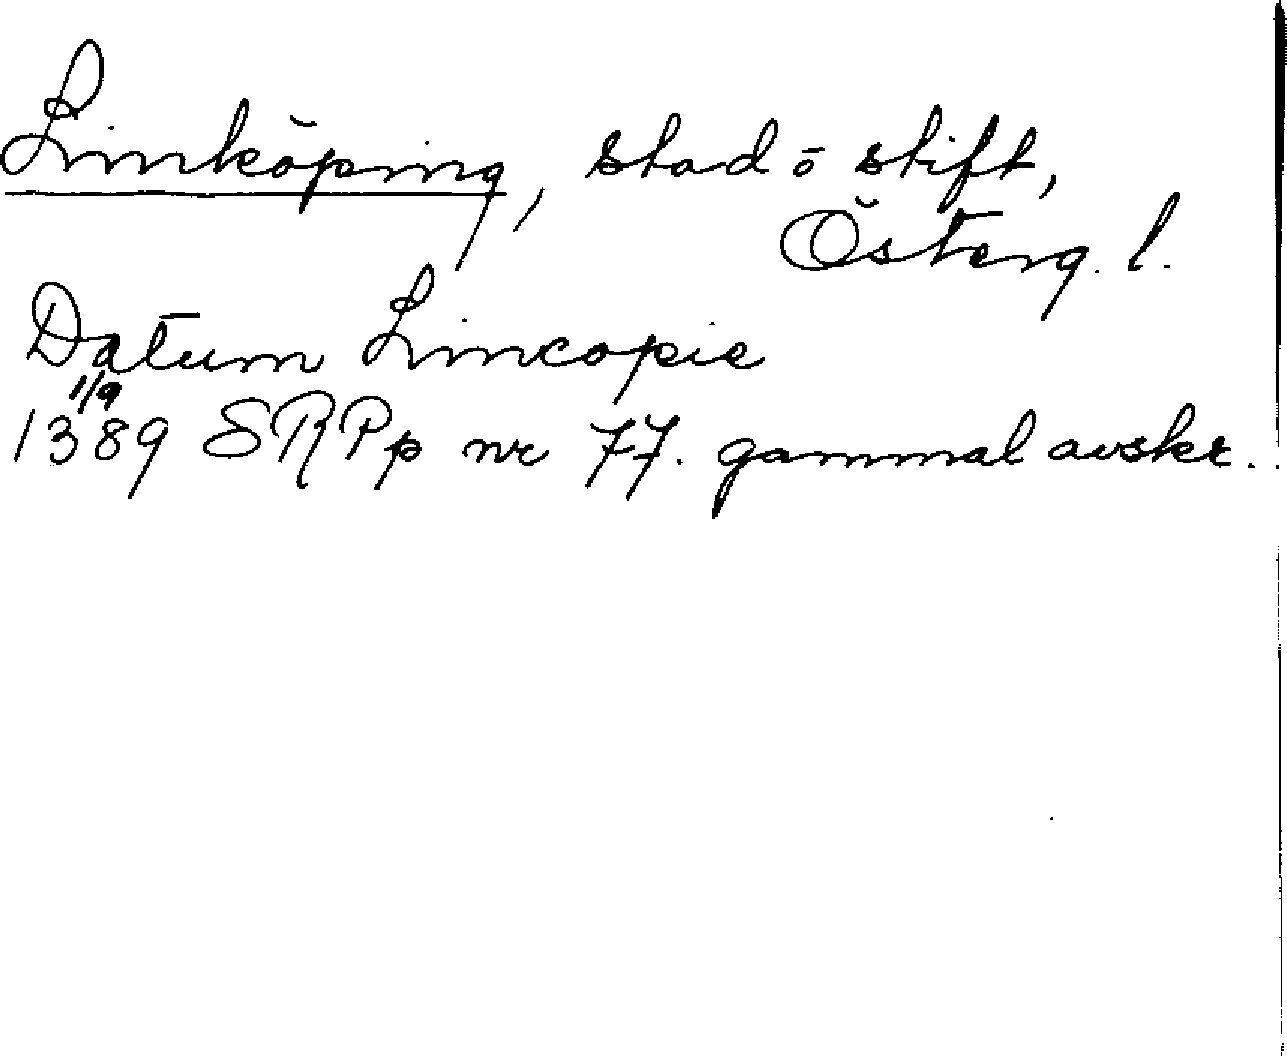 Linköping, stad ō stift,
Österg. l.
Datum Lincopie
1/9
1389 SRPp nr 77. gammal avskr.